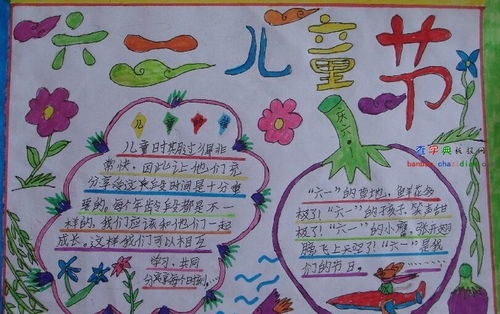 六一儿童节
庆六一
儿童时期过得非
常快，因此让他们充
分享受这段时间是十分重
要的，每个年龄段都是不一
样的，我们应该和他们一起
成长。这样我们可以相互
学习、共同
分享每个时刻…
"六一"的草地，鲜花多
极了！"六一"的孩子，笑声甜
极了！"六一"的小鹰，张开翅
膀飞上天啦了！"六一"是我
们的节日。
查字典
教程网